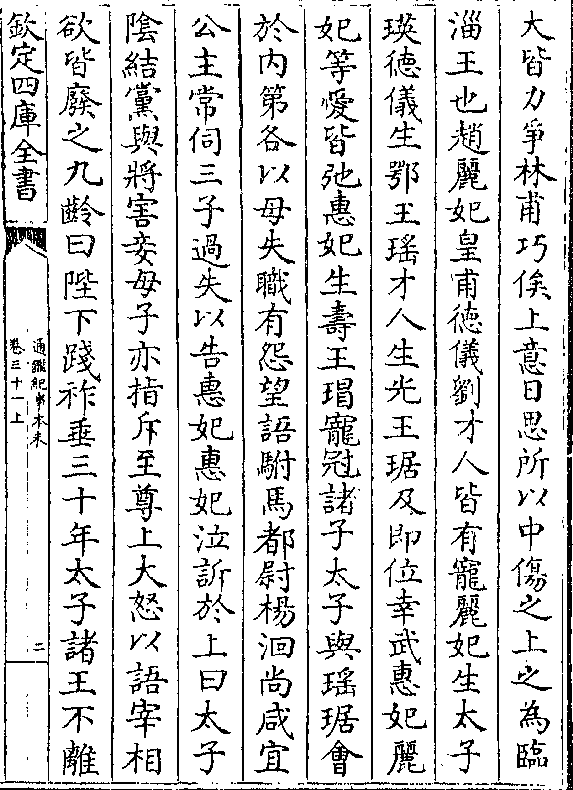 大皆力爭林甫巧俟上意日思所以中傷之上之為臨
淄王也趙麗妃皇甫徳儀劉才人皆有寵麗妃生太子
瑛徳儀生鄂王瑤才人生光王琚及即位幸武惠妃麗
妃等愛皆弛惠妃生壽王瑁寵冠諸子太子與瑤琚㑹
於内第各以母失職有怨望語駙馬都尉楊洄尚咸宜
公主常伺三子過失以告惠妃惠妃泣訴於上曰太子
陰結黨與將害妾母子亦指斥至尊上大怒以語宰相
欲皆廢之九齡曰陛下踐祚垂三十年太子諸王不離
欽定四庫全書
通鑑紀事本末
卷三十一上
二